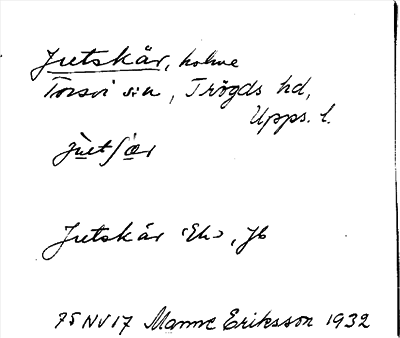 Jutskär, holme
Torsvi sn, Trögds hd,
Upps. l.
Jutskär Ek, Jb
75 NV 17 Manne Eriksson 1932